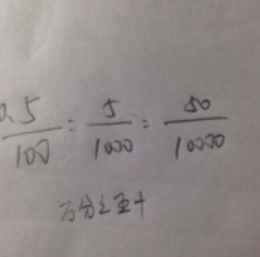 0.5/100 = 5/1000 = 50/10000
万分之五十